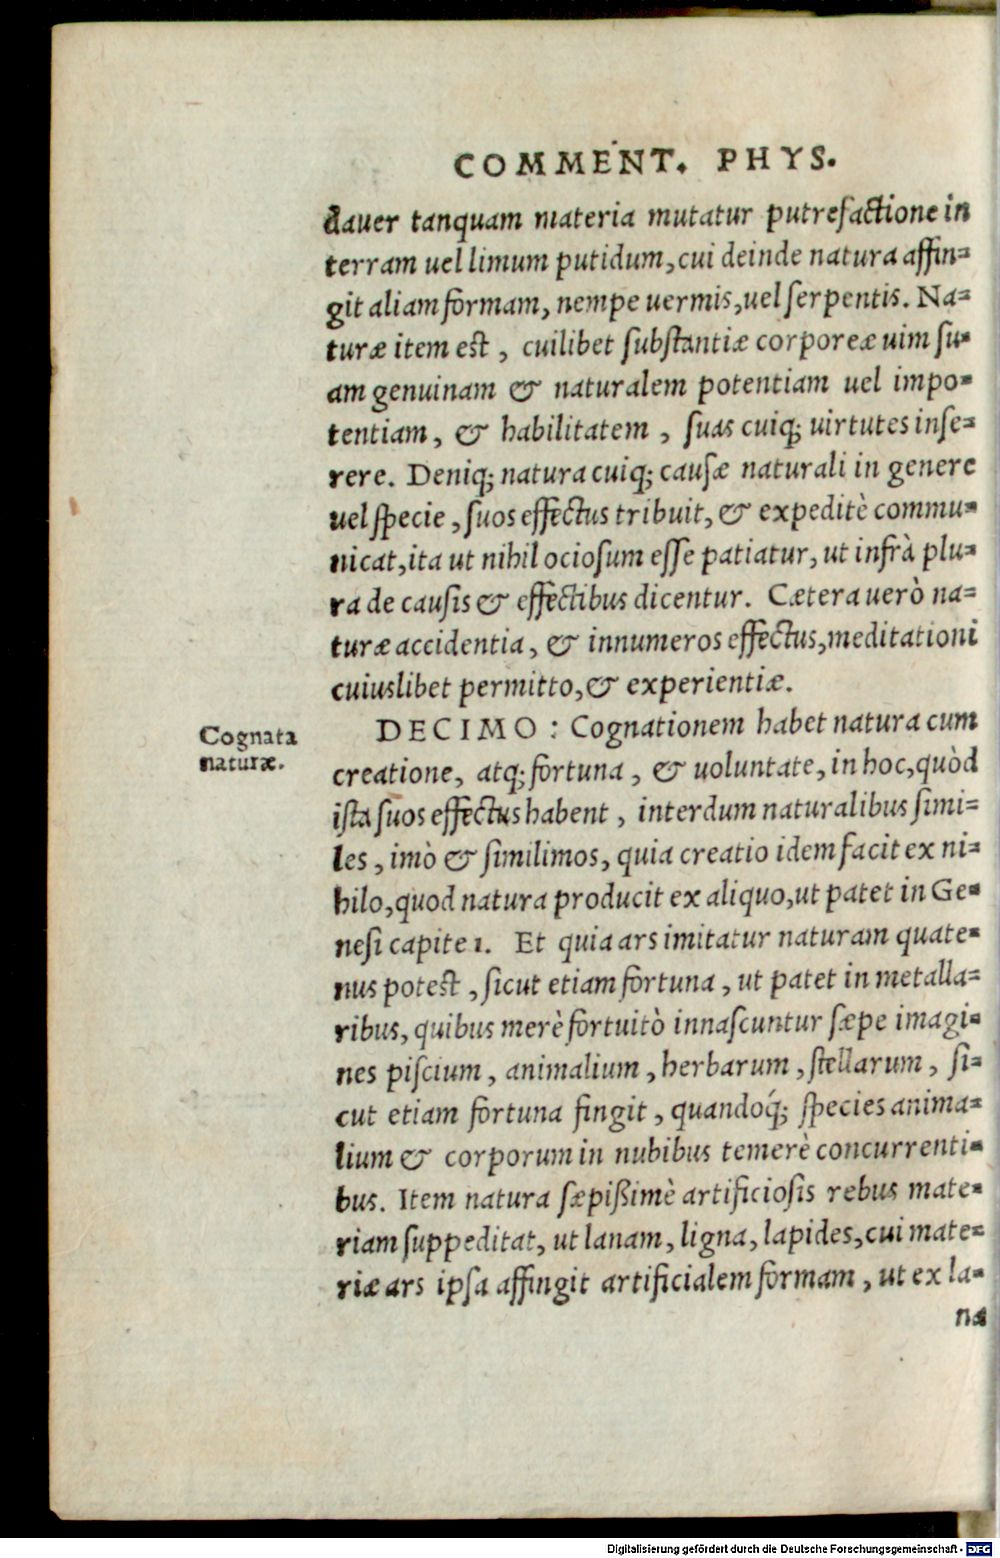 COMMENT. PHYS.
dauer tanquam materia mutatur putrefactione in
terram uel limum putidum, cui deinde natura affin=
git aliam formam, nempe uermis, uel serpentis. Na=
turæ item est, cuilibet substantiæ corporeæ uim su=
am genuinam & naturalem potentiam uel impo=
tentiam, & habilitatem, suas cuiq; uirtutes inse=
rere. Deniq; natura cuiq; causæ naturali in genere
uel specie, suos effectus tribuit, & expeditè commu=
nicat, ita ut nihil ociosum esse patiatur, ut infrà plu=
ra de causis & effectibus dicentur. Cætera uerò na=
turæ accidentia, & innumeros effectus, meditationi
cuiuslibet permitto, & experientiæ.
Cognata
naturæ.
DECIMO: Cognationem habet natura cum
creatione, atq; fortuna, & uoluntate, in hoc, quòd
ista suos effectus habent, interdum naturalibus simi=
les, imò & similimos, quia creatio idem facit ex ni=
hilo, quod natura producit ex aliquo, ut patet in Ge=
nesi capite 1. Et quia ars imitatur naturam quate=
nus potest, sicut etiam fortuna, ut patet in metalla=
ribus, quibus merè fortuitò innascuntur sæpe imagi=
nes piscium, animalium, herbarum, stellarum, si=
cut etiam fortuna fingit, quandoq́; species anima=
lium & corporum in nubibus temerè concurrenti=
bus. Item natura sæpißimè artificiosis rebus mate=
riam suppeditat, ut lanam, ligna, lapides, cui mate=
riæ ars ipsa affingit artificialem formam, ut ex la=
na
Digitalisierung gefördert durch die Deutsche Forschungsgemeinschaft - DFG